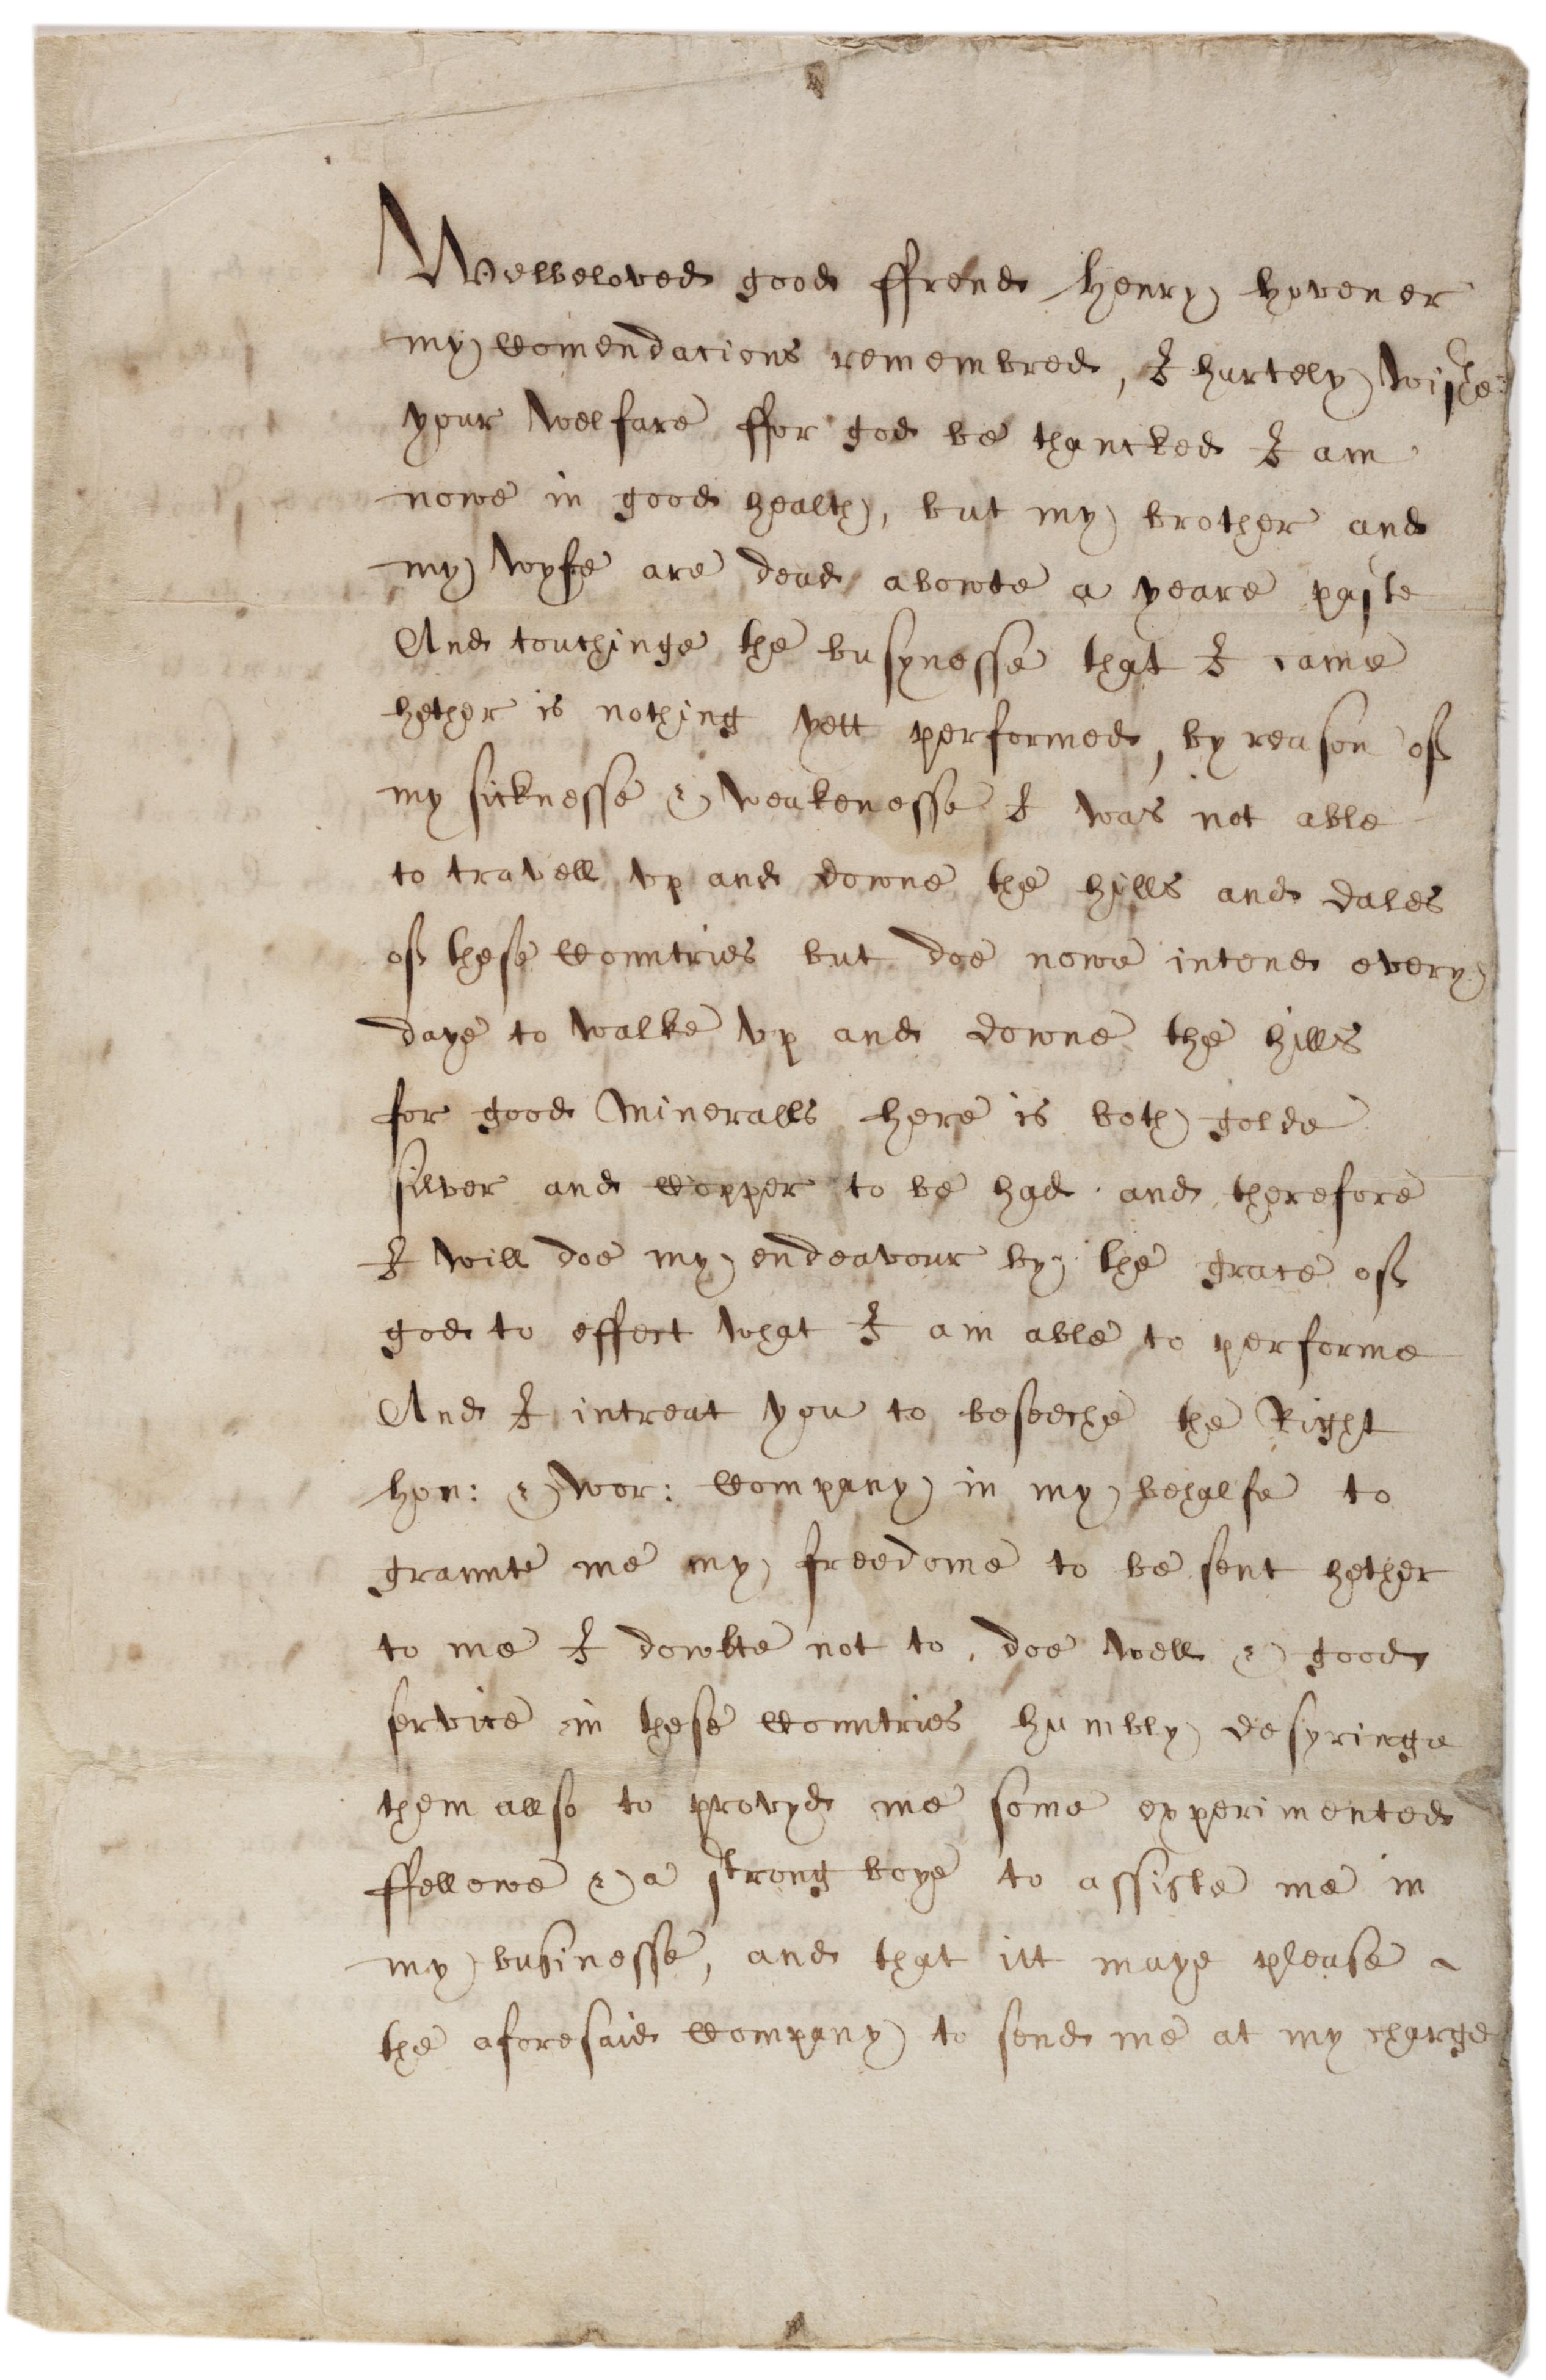 Welbeloved good ffrend Henry hovener
my Comendacions remembred, I hartely wishe
your welfare ffor god be thancked I am
nowe in good health, but my brother and
my wyfe are dead abowte a yeare paste
And touchinge the busynesse that I came
hether is nothing yett performed, by reason of
my sicknesse & weakenesse I was not able
to travell vp and downe the hills and dales
of these Countries but doe nowe intend every
daye to walke vp and downe the hills
for good Mineralls here is both golde
silver and Copper to be had and therefore
I will doe my endeavour by the grace of
god to effect what I am able to performe
And I intreat you to beseeche the Right
hon: & wor: Company in my behalfe to
graunte me my freedome to be sent hether
to me I dowbte not to doe well & good
service in these Countries humbly desyringe
them allso to provyd me some experimented
ffellowe & a strong boye to assiste me in
my businesse, and that itt maye please
the aforesaid Company to send me at my charge